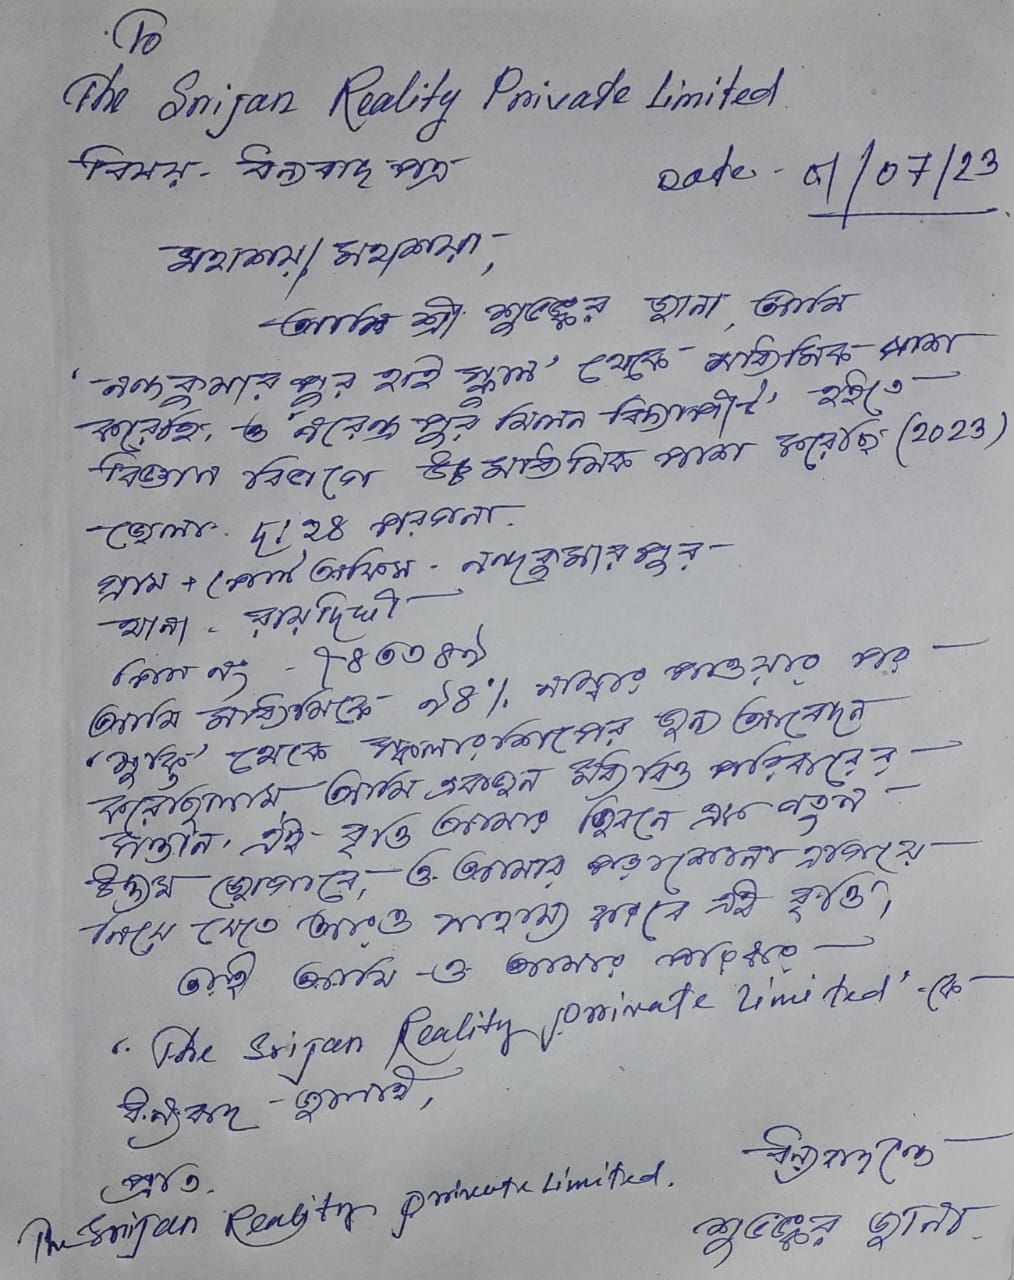 To
The Srijan Reality Private Limited
বিষয়- ধন্যবাদ পত্র
Date - 01/07/23
মহাশয়/মহাশয়া,
আমি শ্রী শুভঙ্কর জানা, আমি
'নন্দকুমার পুর হাই স্কুল' থেকে মাধ্যমিক পাশ
করেছি, ও 'নরেন্দ্র পুর মিলন বিদ্যাপীঠ' হইতে
বিজ্ঞান বিভাগে উচ্চ মাধ্যমিক পাশ করেছি (2023)
জেলা- দঃ ২৪ পরগনা.
গ্রাম + পোস্ট অফিস - নন্দকুমার পুর
থানা - রায়দিঘী
পিন নং - ৭৪৩৩৪৯
আমি মাধ্যমিকে ৯৪% নাম্বার পাওয়ার পর
'মুক্তি' থেকে স্কলারশিপের জন্য আবেদন
করেছিলাম, আমি একজন মধ্যবিত্ত পরিবারের
সন্তান, এই বৃত্তি আমার জীবনে এক নতুন
উদ্যম জোগাবে, ও আমার পড়াশোনা এগিয়ে
নিয়ে যেতে আরও সাহায্য করবে এই বৃত্তি,
তাই আমি ও আমার পরিবার
"The Srijan Reality private limited'-কে
ধন্যবাদ জানাই,
প্রতি.
The Srijan Reality private Limited.
ধন্যবাদান্তে
শুভঙ্কর জানা.